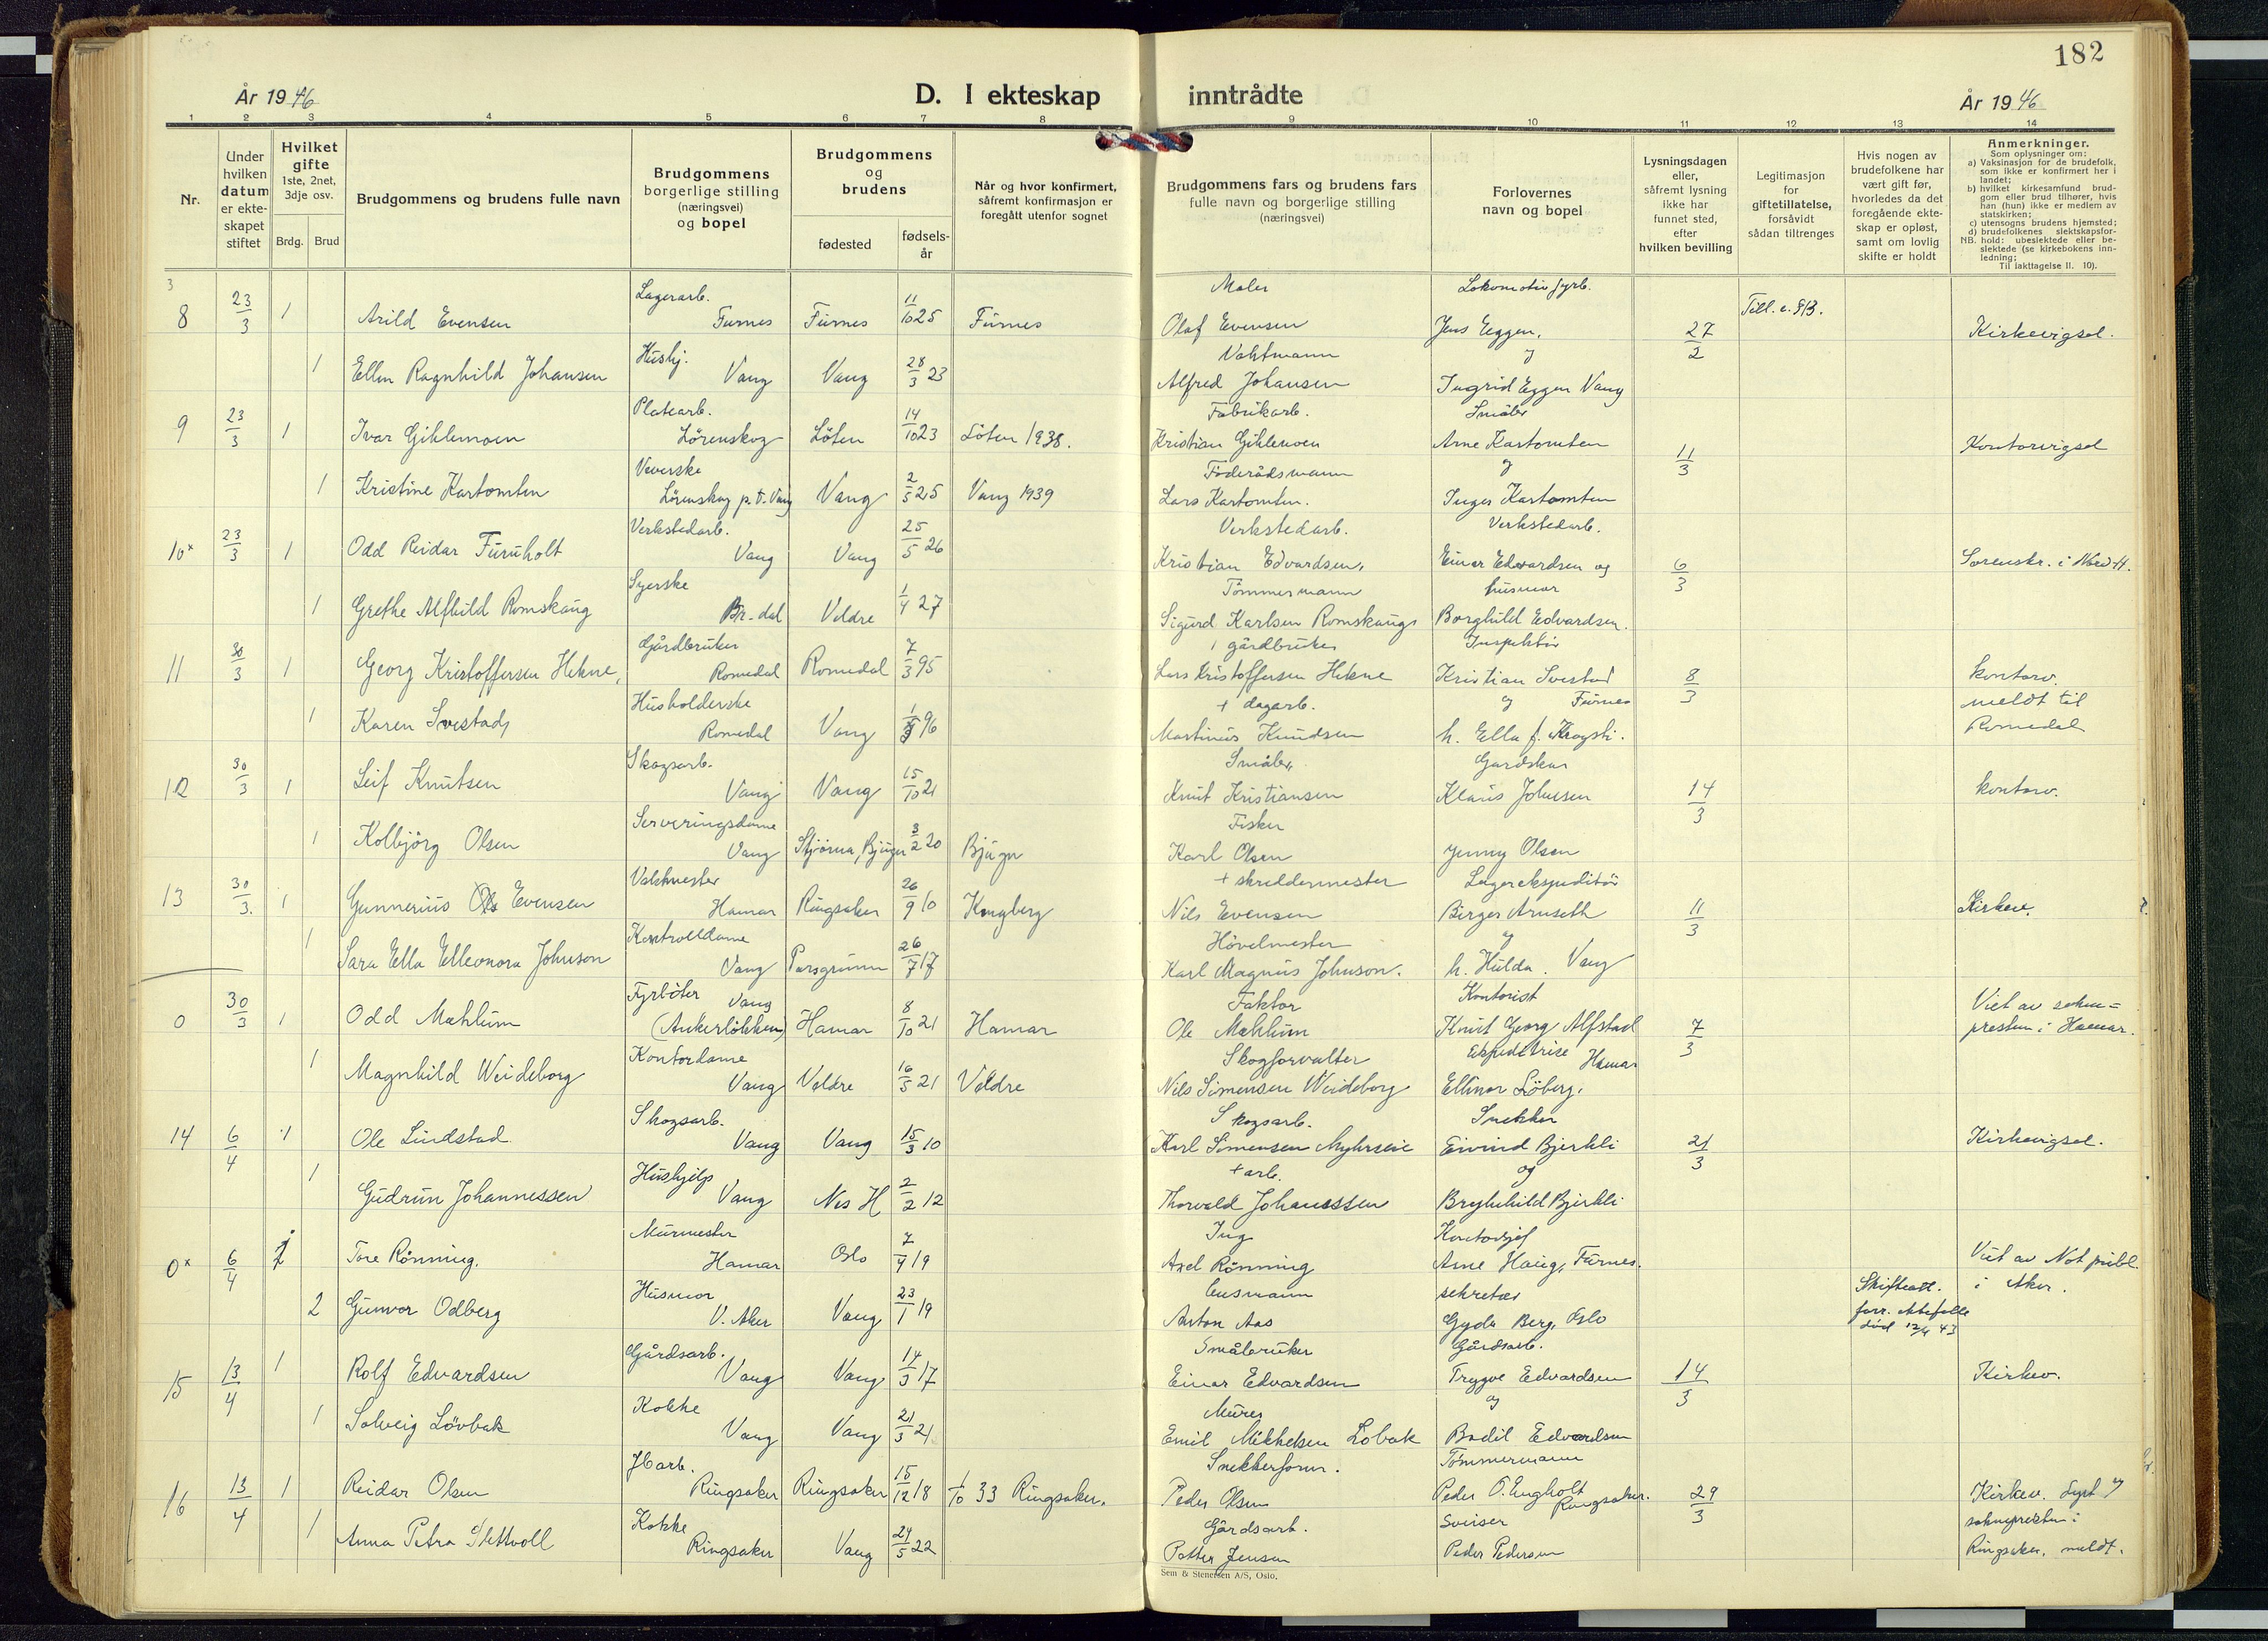 182
År 1946
D. I ekteskap inntrådte
År 1946
1 2 3 4 5 6 7 8 9 10 11 12 13 14
Nr.
Under hvilken datum er ekteskapet stiftet
Hvilket gifte 1ste, 2net, 3dje osv.
Brdg. Brud
Brudgommens og brudens fulle navn
Brudgommens borgerlige stilling (næringsvei) og bopel
Brudgommens og brudens
fødested
fødselsår
Når og hvor konfirmert, såfremt konfirmasjon er foregått utenfor sognet
Brudgommens fars og brudens fars fulle navn og borgerlige stilling (næringsvei)
Forlovernes navn og bopel
Lysningsdagen eller, såfremt lysning ikke har funnet sted, efter hvilken bevilling
Legitimasjon for giftetillatelse, forsåvidt sådan tiltrenges
Hvis nogen av brudefolkene har vært gift før, hvorledes da det foregående ekteskap er opløst, samt om lovlig skifte er holdt
Anmerkninger.
Som oplysninger om:
a) Vaksinasjon for de brudefolk, som ikke er konfirmert her i landet;
b) hvilket kirkesamfund brudgom eller brud tilhører, hvis han (hun) ikke er medlem av statskirken;
c) utensogns brudens hjemsted;
d) brudefolkenes slektskapsforhold: ubeslektede eller beslektede (se kirkebokens innledning;
NB.
Til iakttagelse II. 10).
8 23/3 1 Arild Evensen Lagerarb. Furnes Furnes 11/10 25 Furnes Maler Olaf Evensen Lokomotivfyrb. Jens Eggen, 27/2 Till. e. §13. Kirkevigsel.
1 Ellen Ragnhild Johansen Hushj. Vang Vang 28/3 23 Vaktmann Alfred Johansen og Ingrid Eggen Vang
9 23/3 1 Ivar Gihlemoen Platearb. Lörenskog Löten 14/10 23 Löten 1938. Fabrikarb. Kristian Gihlemoen Småbr Arne Kartomten 11/3 Kontorvigsel
1 Kristine Kartomten Veverske Lörenskog p. t. Vang Vang 2/5 25 Vang 1939 Föderådsmann Lars Kartomten. og Inger Kartomten
10x 23/3 1 Odd Reidar Furuholt Verkstedarb. Vang Vang 25/5 26 Verkstedarb. Kristian Edvardsen, Verkstedarb. Einar Edvardsen og 6/3 Sorenskr. i Nord-H.
1 Grethe Alfhild Romskaug Syerske Br-dal Veldre 1/4 27 Tömmermann Sigurd Karlsen Romskaugs husmor Borghild Edvardsen.
11 30/3 1 Georg Kristoffersen Hekne, Gårdbruker Romedal Romedal 7/3 95 gårdbruker Lars Kristoffersen Hekne Inspektör Kristian Svestad 8/3 kontorv.
1 Karen Svestad Husholderske Romedal Vang 96 + dagarb. Martinus Knudsen og Furnes h. Ella f. Krogsti. meldt til Romedal
12 30/3 1 Leif Knutsen Skogsarb. Vang Vang 15/10 21 Småbr. Knut Kristiansen Gardskar Klaus Johnsen 14/3 kontorv.
1 Kolbjörg Olsen Serveringsdame Vang Stjörna, Bjugn 3/2 20 Bjugn Fisker Karl Olsen Jenny Olsen
13 30/3. 1 Gunnerius Evensen Vaktmester Hamar Ringsaker 26/9 10 Kongberg + skreddermester Nils Evensen Lagerekspeditör Birger Aruseth 11/3 Kirkev.
1 Sara Ella Elleonora Johnson Kontrolldame Vang Porsgrunn 26/7 17 Hövelmester Karl Magnus Johnson. og h. Hulda. Vang
0 30/3 1 Odd Mæhlum Fyrböter Vang (Ankerlökken) Hamar 8/10 21 Hamar Faktor Ole Mæhlum Kontorist Knut Georg Alfstad 7/3 Viet av sokneprestem i Hamar.
1 Magnhild Weideborg Kontordame Vang Veldre 16/5 21 Veldre Skogforvalter Nils Simensen Weideborg Ekspeditrise Hamar Ellinor Löberg.
14 6/4 1 Ole Lindstad Skogsarb. Vang Vang 15/3 10 Skogsarb. Karl Simensen Myhrseie Snekker Eivind Bjerkli 21/3 Kirkevigsel.
1 Gudrun Johannessen Hushjelp Vang Nes H 2/2 12 + arb. Thorvald Johanessen og Brynhild Bjerkli
0x 6/4 Tore Rönning. Murmester Hamar Oslo 7/4 19 Ing Axel Rönning Kontorsjef Arne Haug, Furnes. Viet av Not publ. i Aker.
2 Gunvor Odberg Husmor V. Aker Vang 23/1 19 Anton Aas sekretær Gyda Berg, Oslo Skifteatt. forr. ektefelle död 12/4 43
15 13/4 1 Rolf Edvardsen Gårdsarb. Vang Vang 14/3 17 Småbruker Einar Edvardsen Gårdsarb. Trygve Edvardsen 14/3 Kirkev.
1 Solveig Lövbak Kokke Vang Vang 21/3 21 Murer Emil Mikkelsen Lobak og Bodil Edvardsen
16 13/4 1 Reidar Olsen Jbarb. Ringsaker Ringsaker 15/12 18 1/10 33 Ringsaker. Snekkerform. Peder Olsen Tömmermann Peder O. Engholt Ringsaker. 29/3 Kirkev. Lyst og
1 Anna Petra Slettvoll Kokke Ringsaker Vang 24/5 22 Gårdsarb. Petter Jensen Sveiser Peder Pedersen sokneprestem i Ringsaker. meldt.
Sem & Stenersen A/S, Oslo.